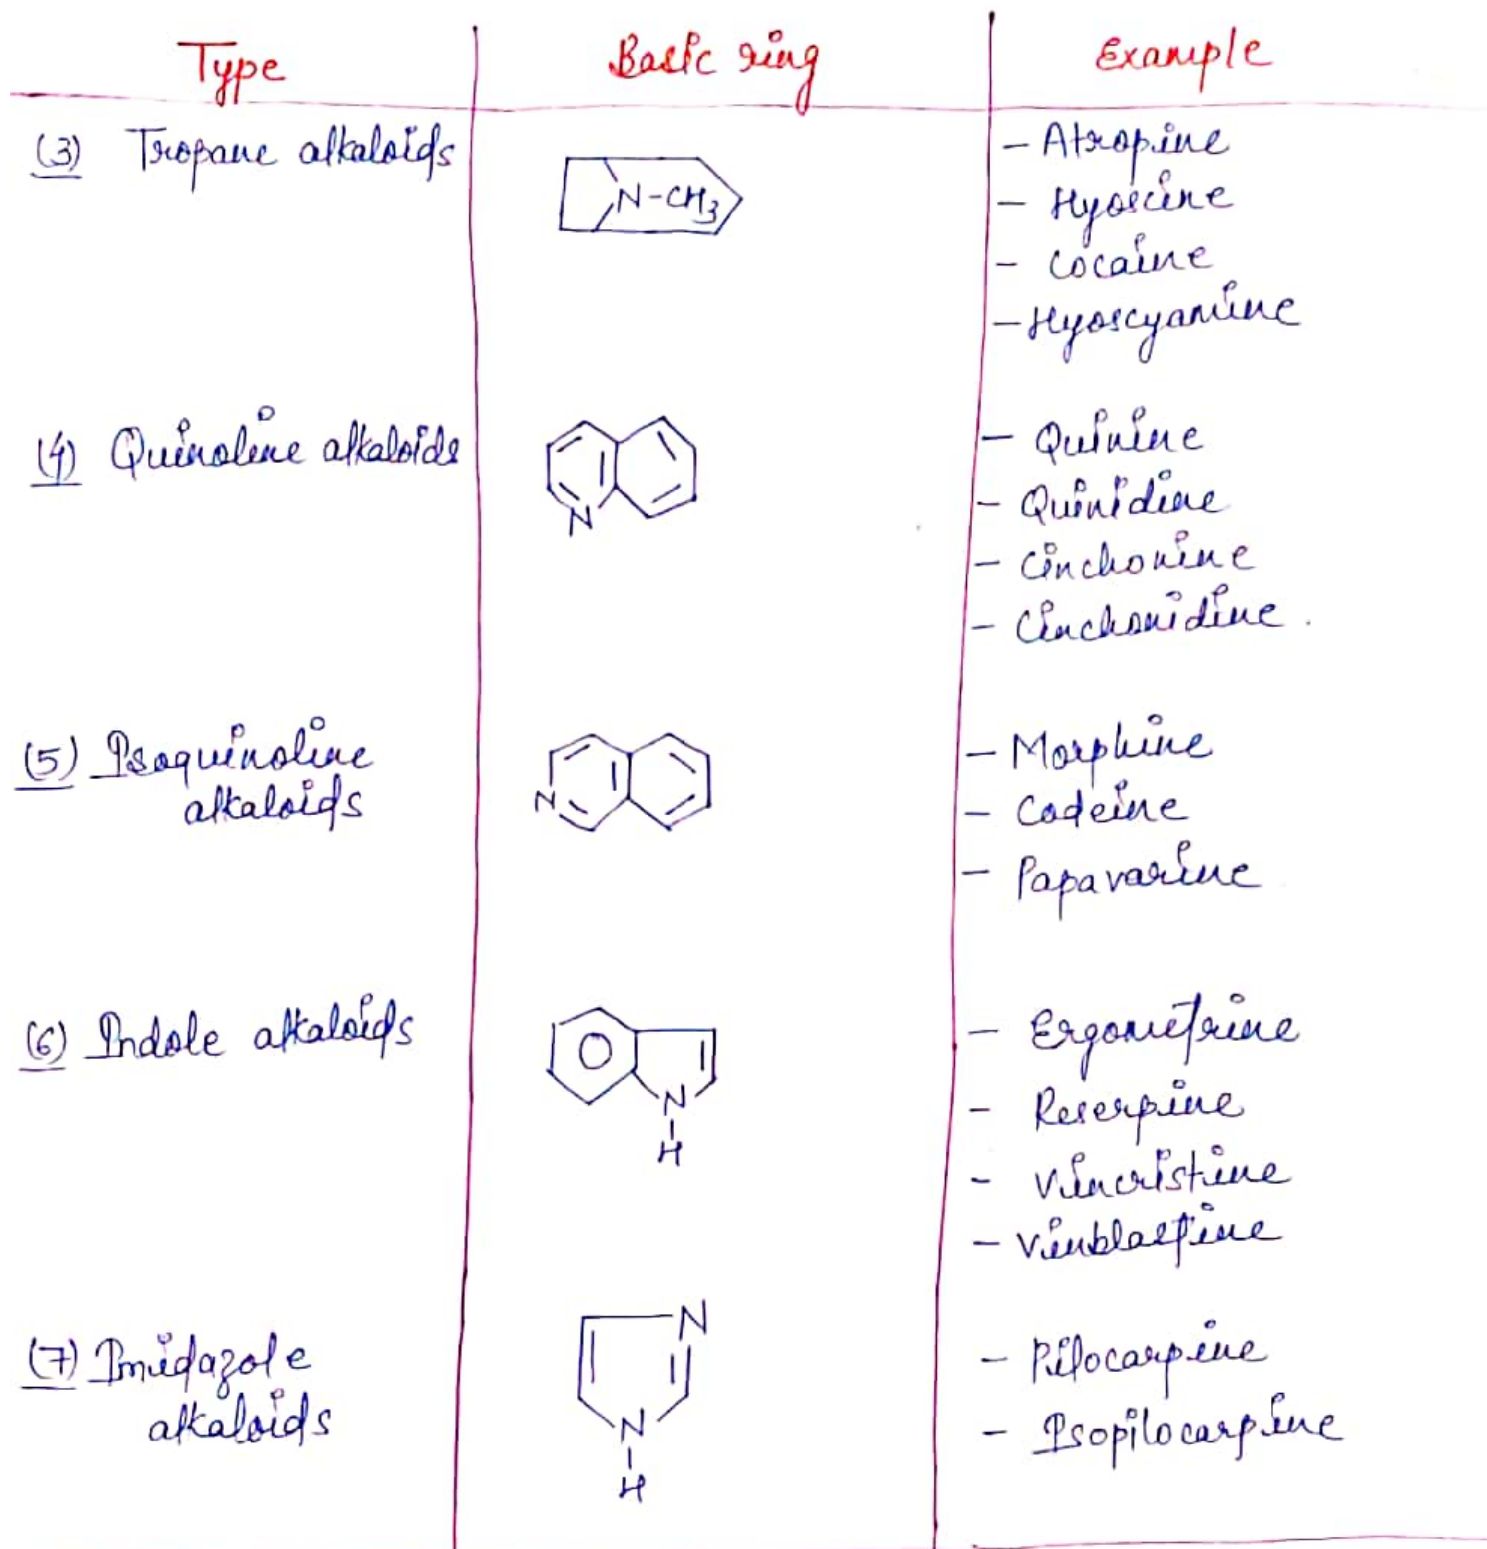 Type Basic ring Example
(3) Tropane alkaloids
N-CH3
- Atropine
- Hyoscine
- Cocaine
- Hyoscyamine
(4) Quinoline alkaloids
N
- Quinine
- Quinidine
- Cinchonine
- Cinchonidine.
(5) Isoquinoline
alkaloids
N
- Morphine
- Codeine
- Papavarine
(6) Indole alkaloids
N
H
- Ergometrine
- Reserpine
- Vincristine
- Vinblastine
(7) Imidazole
alkaloids
N
N
H
- Pilocarpine
- Isopilocarpine